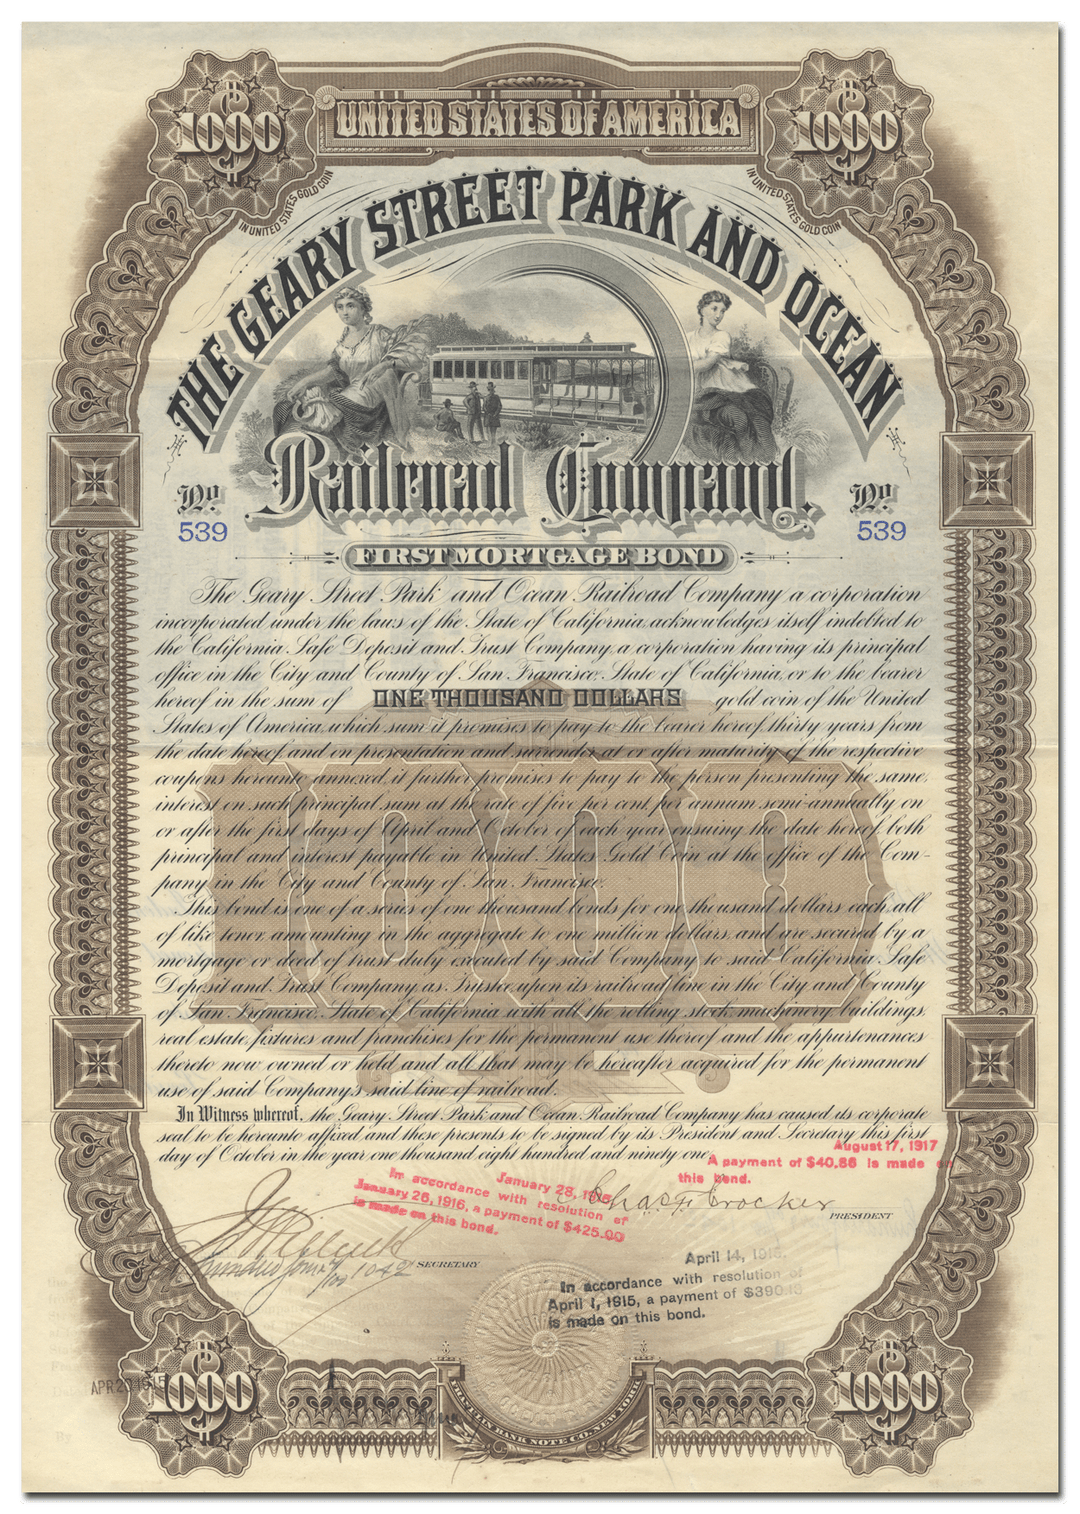 UNITED STATES OF AMERICA
$1000
$1000
IN UNITED STATES GOLD COIN
IN UNITED STATES GOLD COIN
THE GEARY STREET PARK AND OCEAN
Railroad Company.
No 539
No 539
FIRST MORTGAGE BOND
The Geary Street Park and Ocean Railroad Company a corporation
incorporated under the laws of the State of California, acknowledges itself indebted to
the California Safe Deposit and Trust Company, a corporation having its principal
office in the City and County of San Francisco, State of California, or to the bearer
hereof in the sum of ONE THOUSAND DOLLARS gold coin of the United
States of America, which sum it promises to pay to the bearer hereof, thirty years from
the date hereof, and on presentation and surrender, at or after maturity of the respective
coupons hereunto annexed, it further promises to pay to the person presenting the same,
interest on such principal sum at the rate of five per cent. per annum semi-annually on
or after the first days of April and October of each year ensuing the date hereof, both
principal and interest payable in United States Gold Coin at the office of the Com-
pany, in the City and County of San Francisco.
This bond is one of a series of one thousand bonds for one thousand dollars each, all
of like tenor, amounting in the aggregate to one million dollars, and are secured by a
mortgage or deed of trust duly executed by said Company to said California Safe
Deposit and Trust Company, as Trustee, upon its railroad line in the City and County
of San Francisco, State of California with all the rolling stock, machinery, buildings,
real estate, fixtures and franchises for the permanent use thereof and the appurtenances
thereto now owned or held and all that may be hereafter acquired for the permanent
use of said Company's said line of railroad.
In Witness whereof, the Geary Street Park and Ocean Railroad Company has caused its corporate
seal to be hereunto affixed and these presents to be signed by its President and Secretary this first
day of October in the year one thousand eight hundred and ninety one.
August 17, 1917
A payment of $40.86 is made on
this bond.
January 28, 1916
In accordance with resolution of
January 26, 1916, a payment of $425.00
is made on this bond.
Chas. F. Crocker
PRESIDENT
SECRETARY
April 14, 1915.
In accordance with resolution of
April 1, 1915, a payment of $390.
is made on this bond.
APR 20 1915
$1000
$1000
BANK NOTE CO. NEW YORK